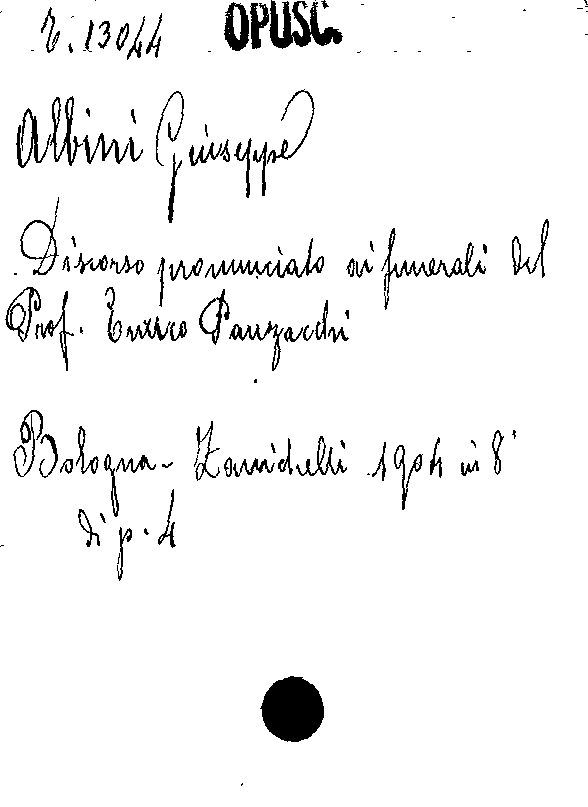 r. 13044 OPUSC.
Albini Giuseppe
Discorso pronunciato ai funerali del
Prof. Enrico Panzacchi
Bologna - Zanichelli 1904 in 8°
di p. 4